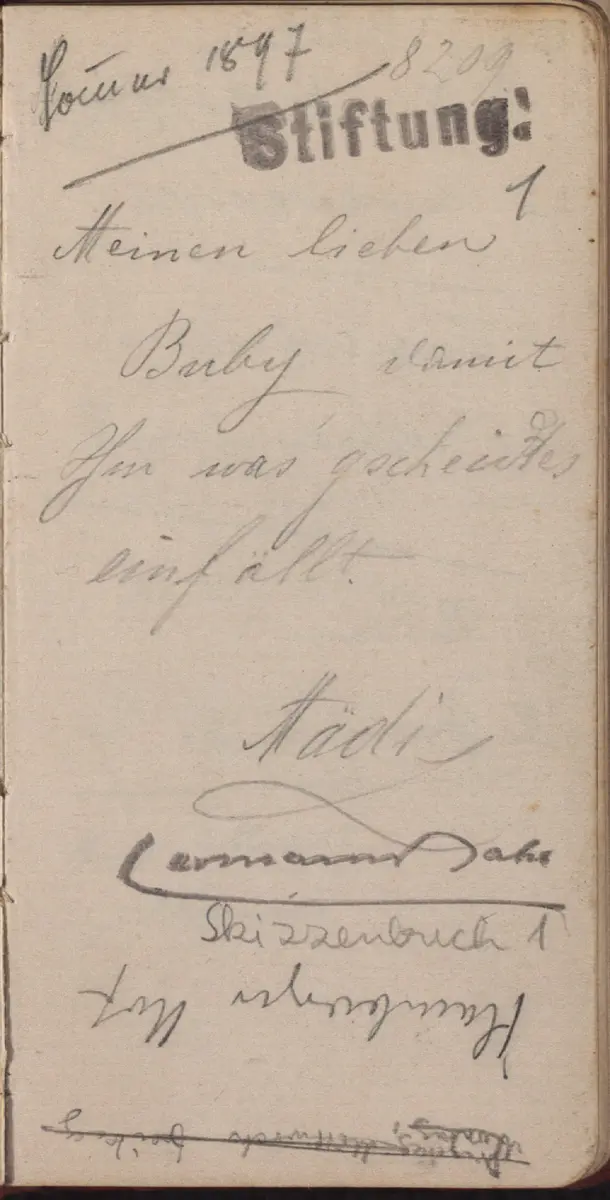 Sommer 1897
8209
Stiftung:
1
Meinen lieben
Buby damit
Ihm was gscheidtes
einfällt.
Mädi
Hermann Bahr
Skizzenbuch 1
Hof
Mittwoch